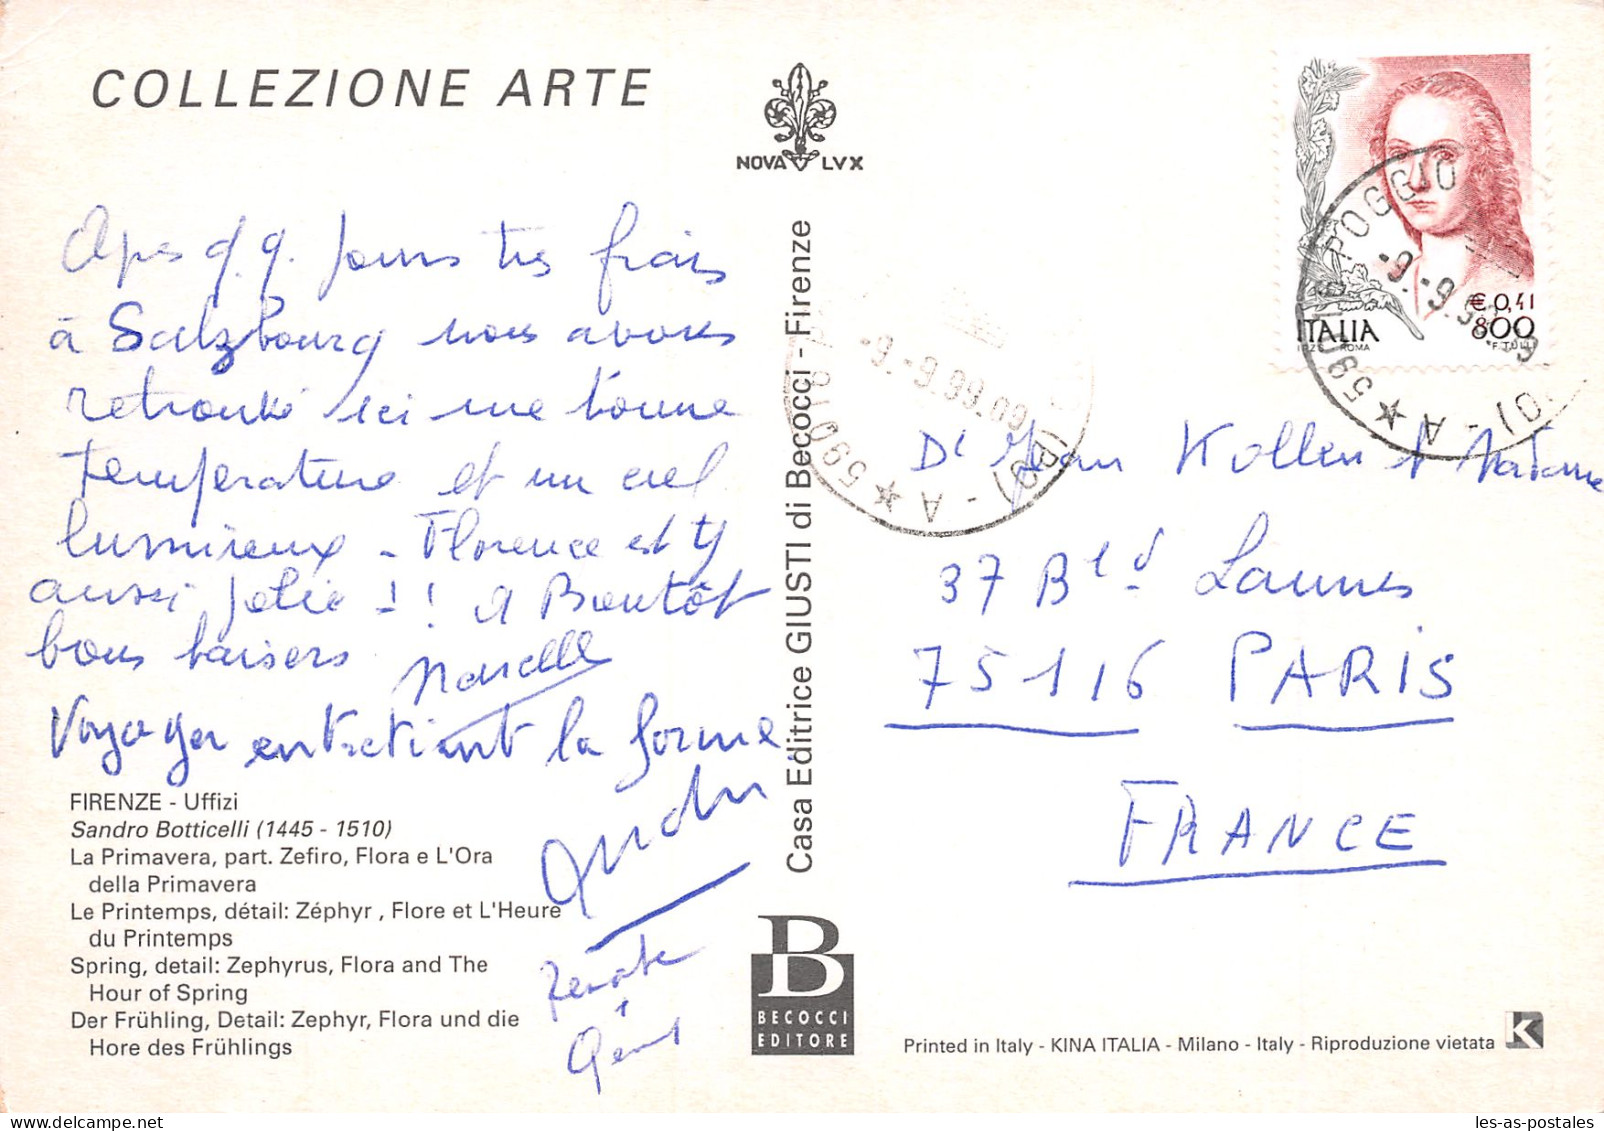 COLLEZIONE ARTE
NOVA LVX
Apes q.q. jours tres frais
à Salzbourg nous avons
retrouvé ici une bonne
temperature et un ciel
lumineux - Florence est tj
aussi jolie !! A Bientôt
bons baisers
Marcelle
Voyager entretient la forme
FIRENZE - Uffizi
Sandro Botticelli (1445 - 1510)
La Primavera, part. Zefiro, Flora e L'Ora
della Primavera
Le Printemps, détail: Zéphyr , Flore et L'Heure
du Printemps
Spring, detail: Zephyrus, Flora and The
Hour of Spring
Der Frühling, Detail: Zephyr, Flora und die
Hore des Frühlings
Renate
+
Casa Editrice GIUSTI di Becocci - Firenze
B
BECOCCI
EDITORE
€ 0,41
ITALIA 800
I.P.Z.S. ROMA F. TULLI
POGGIO
-9.-9.99
A ★ 590
-9.-9.99.09
A ★ 590
Dr Jean Kollen et Madame
37 Bld Lannes
75116 PARIS
FRANCE
Printed in Italy - KINA ITALIA - Milano - Italy - Riproduzione vietata
K
les-as-postales.com